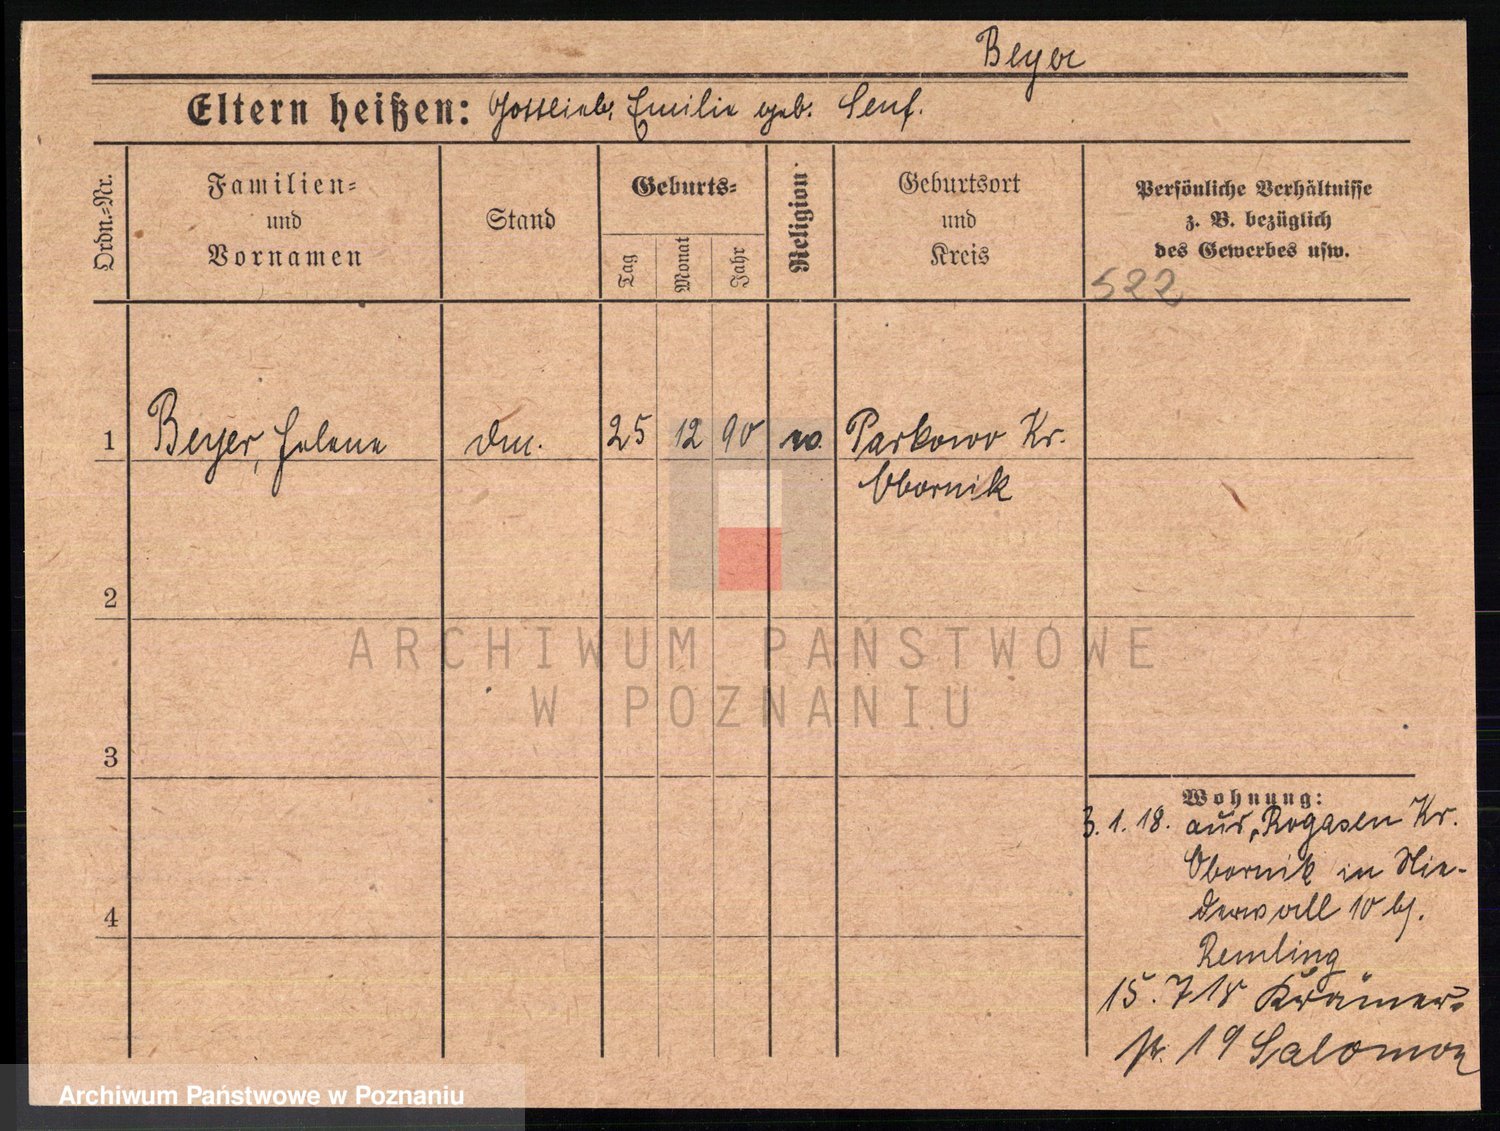 Beyer
Eltern heißen: Gottlieb, Emilie geb. Senf.
Ordn.=Nr.
Familien=
und
Vornamen
Stand
Geburts=
Tag
Monat
Jahr
Religion
Geburtsort
und
Kreis
Persönliche Verhältnisse
z. B. bezüglich
des Gewerbes usw.
522
1 Beyer, Helene 25 12 90 Parkowo Kr.
Obornik
2
3
4
Wohnung:
3.1.18. aus Rogasen Kr.
Obornik in Nie-
derwall 10 bj.
Remling
15.7 18 Krämer=
str. 19 Salomon
ARCHIWUM PAŃSTWOWE
W POZNANIU
Archiwum Państwowe w Poznaniu